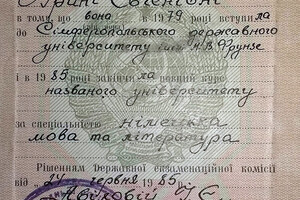 Ірині Євгенівні
в тому, що вона в 1979 році вступила
до Сімферопольського державного
університету ім. М.В.Фрунзе
і в 1985 році закінчила повний курс
названого університету
за спеціальністю німецька
мова та література
Рішенням Державної екзаменаційної комісії
від „24 червня 1985 р.
І.Є.